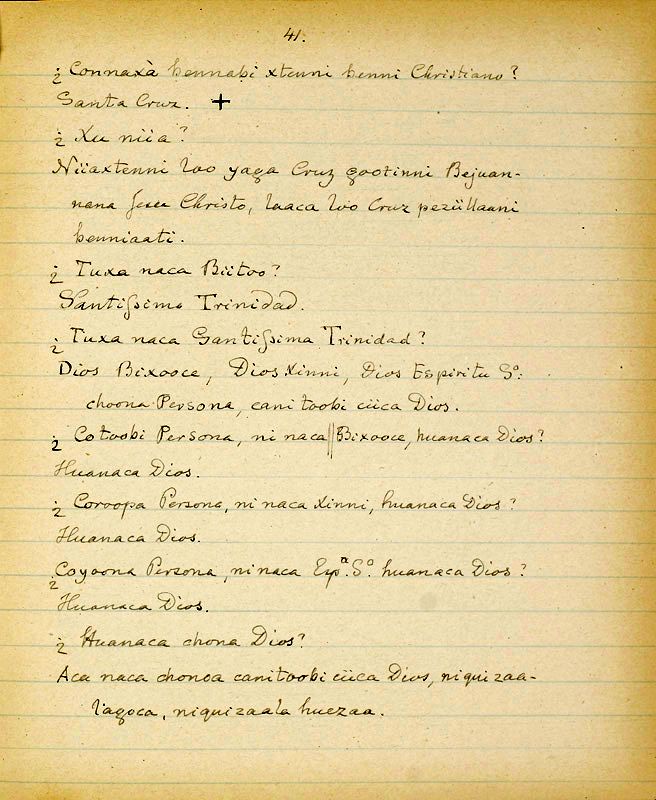 41.
¿ Connaxà bennabi xtenni benni Christiano?
Santa Cruz. +
¿ Xu niia?
Niiaxtenni loo yaga Cruz gootinni Bejuan-
nana Jesu Christo, laaca loo Cruz peziillaani
benniaati.
¿ Tuxa naca Biitoo?
Santissima Trinidad.
¿ Tuxa naca Santissima Trinidad?
Dios Bixooce, Dios Xinni, Dios Espiritu Sº:
choona Persona, cani toobi ciica Dios.
¿ Cotoobi Persona, ni naca || Bixooce, huanaca Dios?
Huanaca Dios.
¿ Coroopa Persona, ni naca Xinni, huanaca Dios?
Huanaca Dios.
¿ Coyoona Persona, ni naca Espª. Sº. huanaca Dios?
Huanaca Dios.
¿ Huanaca chona Dios?
Aca naca chonoa canitoobi ciica Dios, niquizaa-
lagoca, niquizaala huezaa.